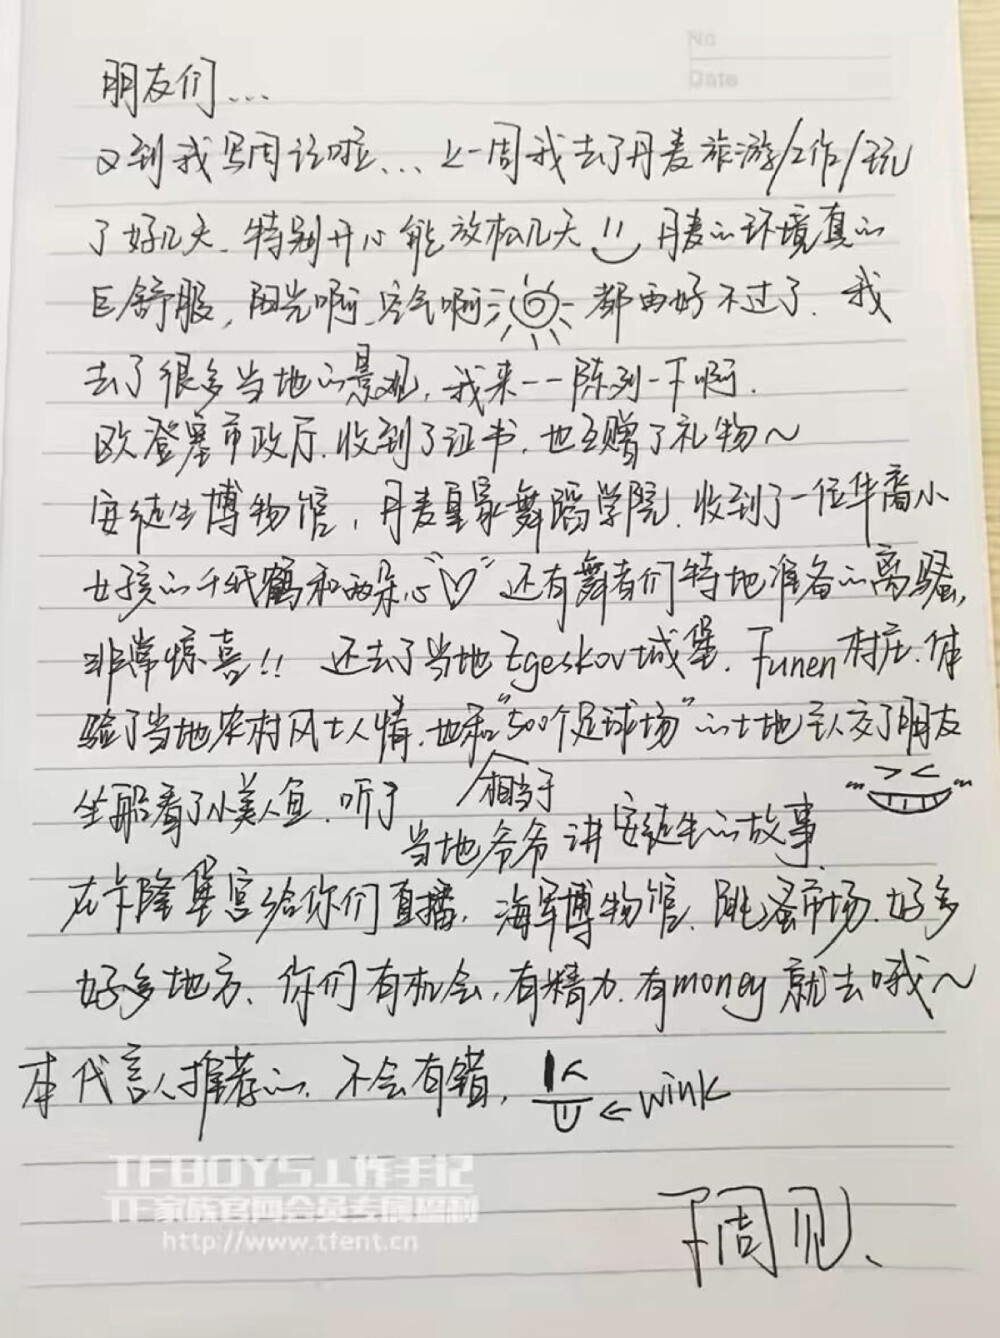 No
Date
朋友们...
又到我写周记啦... 上一周我去了丹麦旅游/工作/玩
了好几天、特别开心能放松几天 丹麦的环境真的
巨舒服,阳光啊、空气啊 都再好不过了、我
去了很多当地的景观,我来一一陈列一下啊.
欧登塞市政厅、收到了证书,也互赠了礼物~
安徒生博物馆,丹麦皇家舞蹈学院、收到了一位华裔小
女孩的千纸鹤和两朵心“♡”还有舞者们特地准备的离骚,
非常惊喜!! 还去了当地Egeskov城堡、Funen村庄、体
验了当地农村风土人情、也和“500个足球场”的土地主人交了朋友
相当于
坐船看了小美人鱼、听了
当地爷爷讲安徒生的故事、
在卡隆堡宫给你们直播,海军博物馆、跳蚤市场、好多
好多地方、你们有机会,有精力、有money就去哦~
本代言人推荐的、不会有错,
←wink
下周见、
TFBOYS工作手记
TF家族官网会员专属福利
http://www.tfent.cn